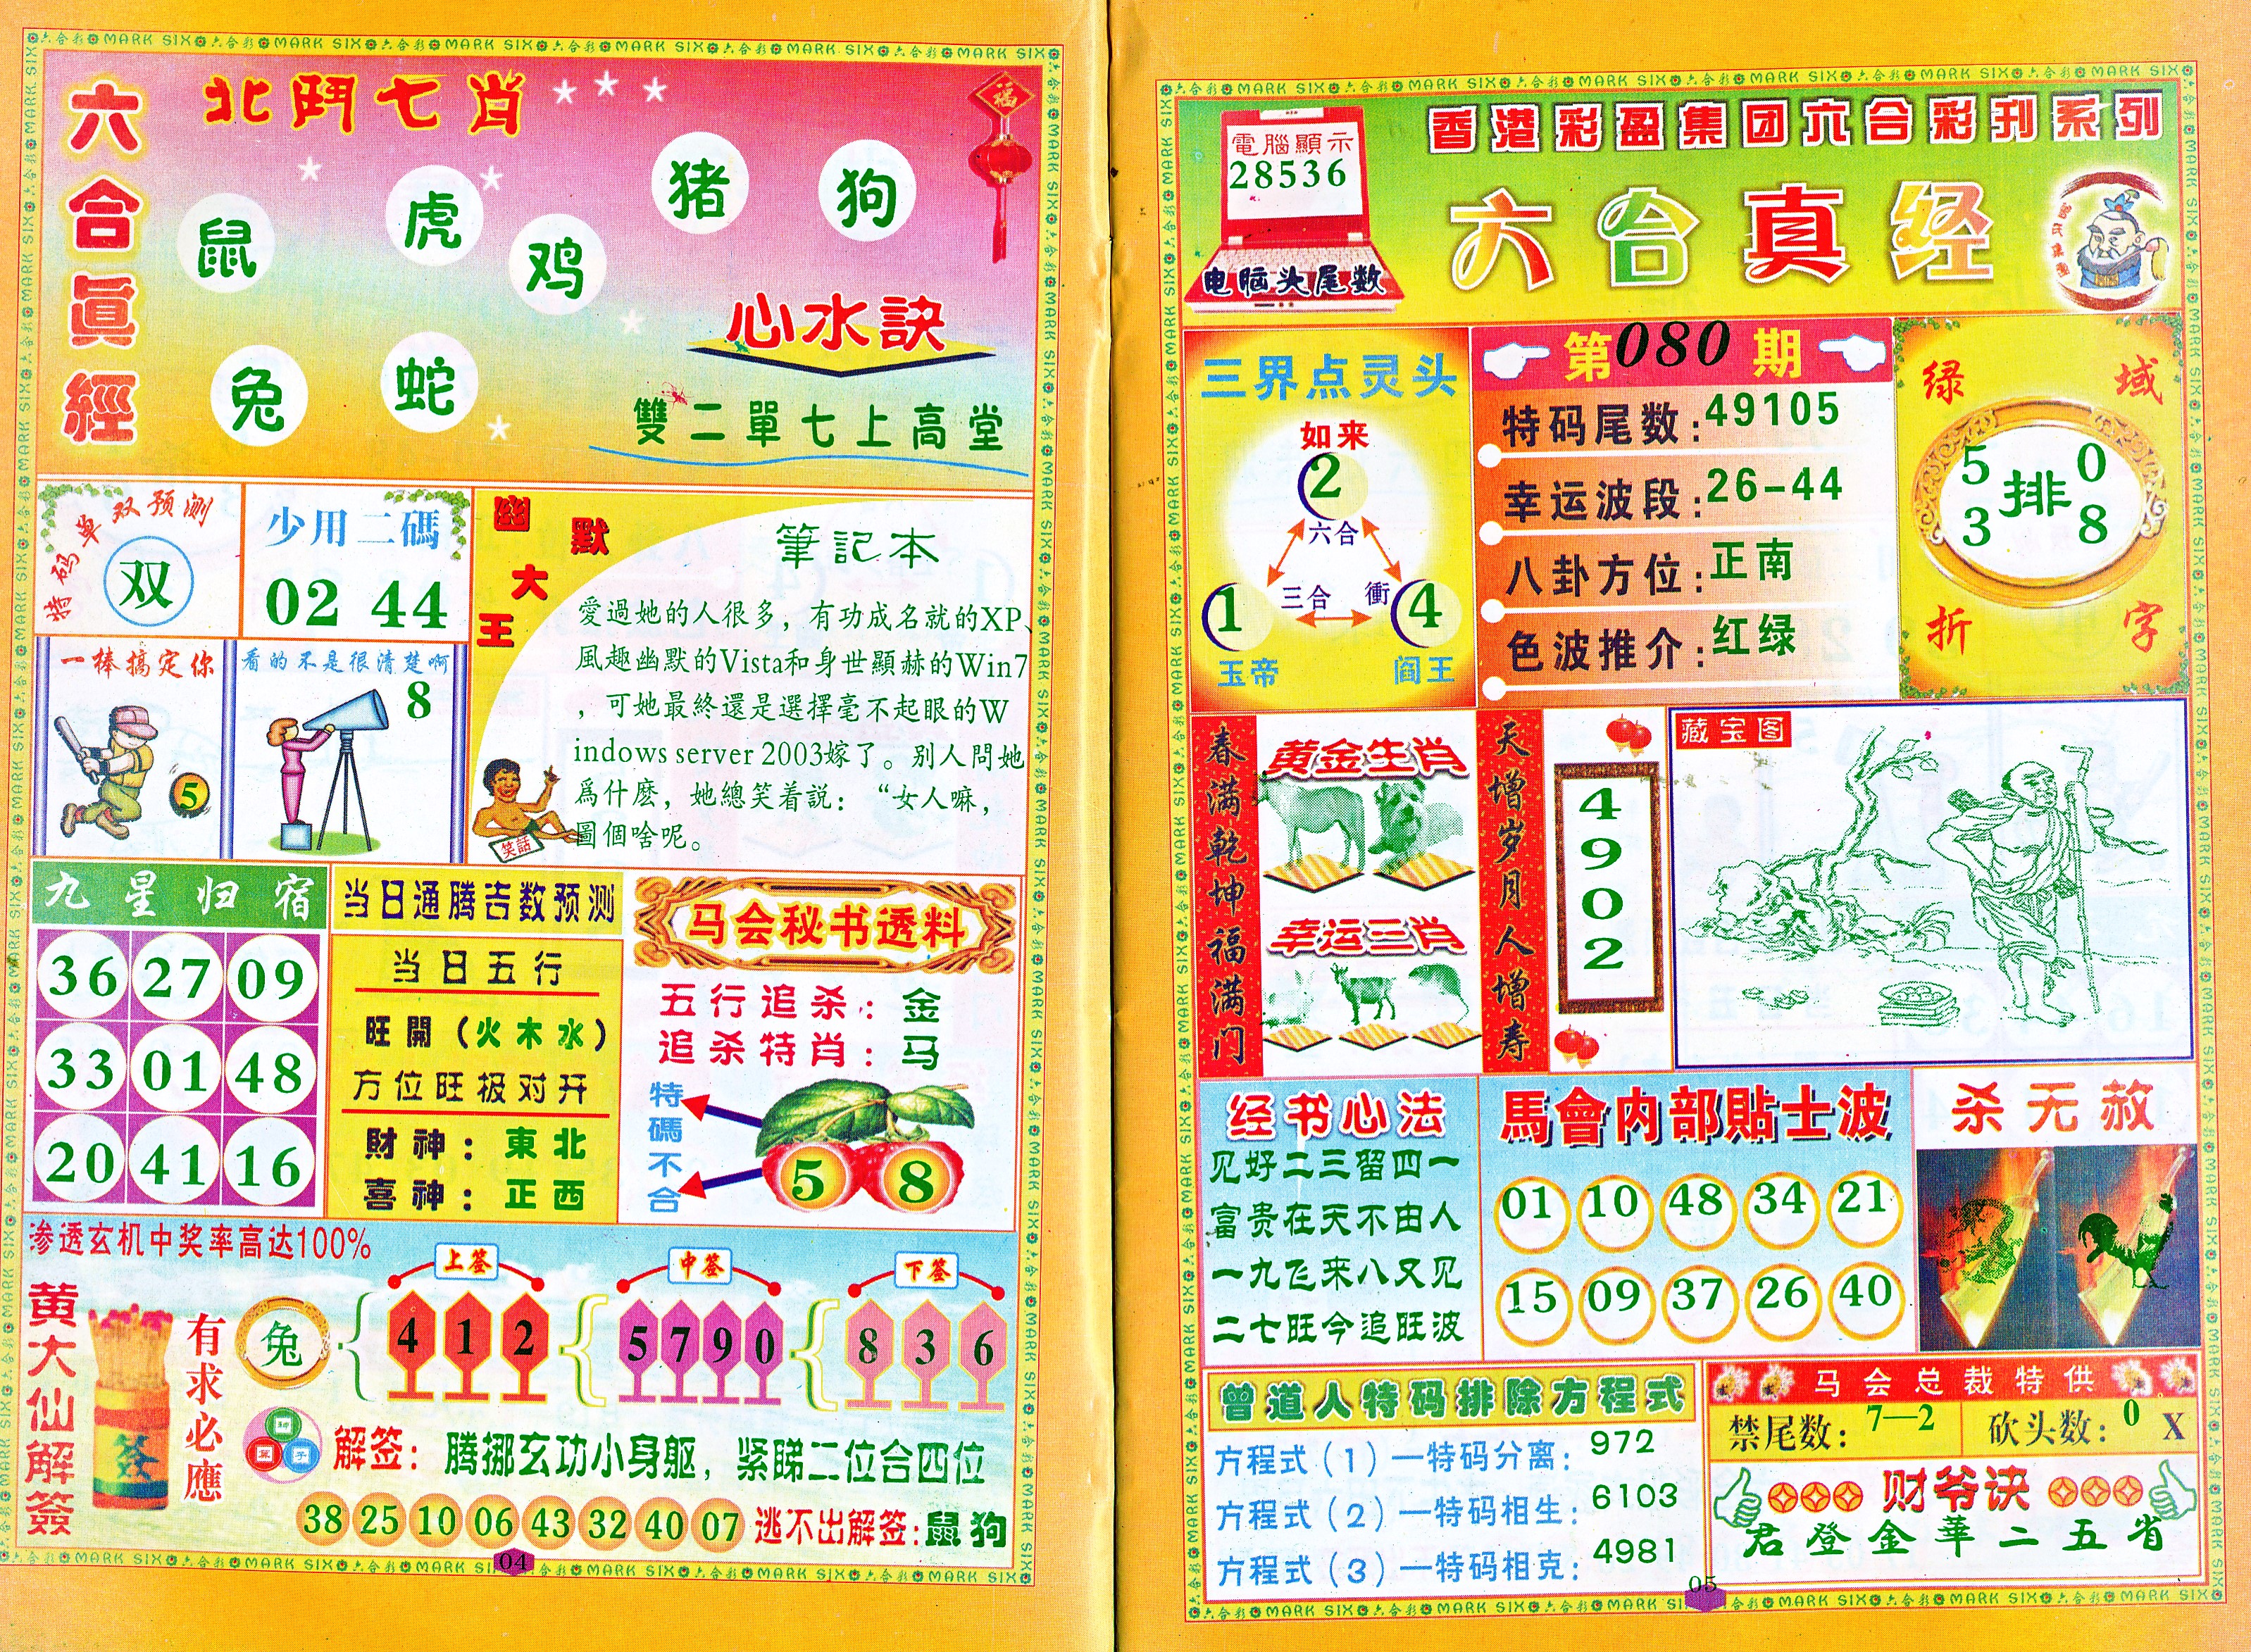 六合眞經
北鬥七肖
鼠
虎
鸡
猪
狗
兔
蛇
福
心水訣
雙二單七上高堂
特码单双预测
双
少用二碼
02 44
一棒搞定你
5
看的不是很清楚啊
8
幽默大王
筆記本
愛過她的人很多，有功成名就的XP、
風趣幽默的Vista和身世顯赫的Win7
，可她最終還是選擇毫不起眼的W
indows server 2003嫁了。别人問她
爲什麽，她總笑着説：“女人嘛，
圖個啥呢。
笑話
九星归宿
36 27 09
33 01 48
20 41 16
当日通腾吉数预测
当日五行
旺開（火木水）
方位旺极对开
財神：東北
喜神：正西
马会秘书透料
五行追杀：金
追杀特肖：马
特碼不合
5 8
渗透玄机中奖率高达100%
黄大仙解簽
签
有求必應
兔
上签
4 1 2
中签
5 7 9 0
下签
8 3 6
解签：腾挪玄功小身躯，紧睇二位合四位
38 25 10 06 43 32 40 07 逃不出解签：鼠狗
04
電腦顯示
28536
电脑头尾数
香港彩盈集团六合彩刊系列
六合真经
三界点灵头
如来
2
六合
三合
衝
1
4
玉帝
阎王
第080期
特码尾数：49105
幸运波段：26-44
八卦方位：正南
色波推介：红绿
绿域折字
5 0
排
3 8
春满乾坤福满门
黄金生肖
幸运三肖
天增岁月人增寿
4902
藏宝图
经书心法
见好二三留四一
富贵在天不由人
一九飞来八又见
二七旺今追旺波
馬會内部貼士波
01 10 48 34 21
15 09 37 26 40
杀无赦
曾道人特码排除方程式
方程式（1）—特码分离：972
方程式（2）—特码相生：6103
方程式（3）—特码相克：4981
马会总裁特供
禁尾数：7—2
砍头数：0 X
财爷诀
君登金華二五省
05
六合彩 MARK SIX